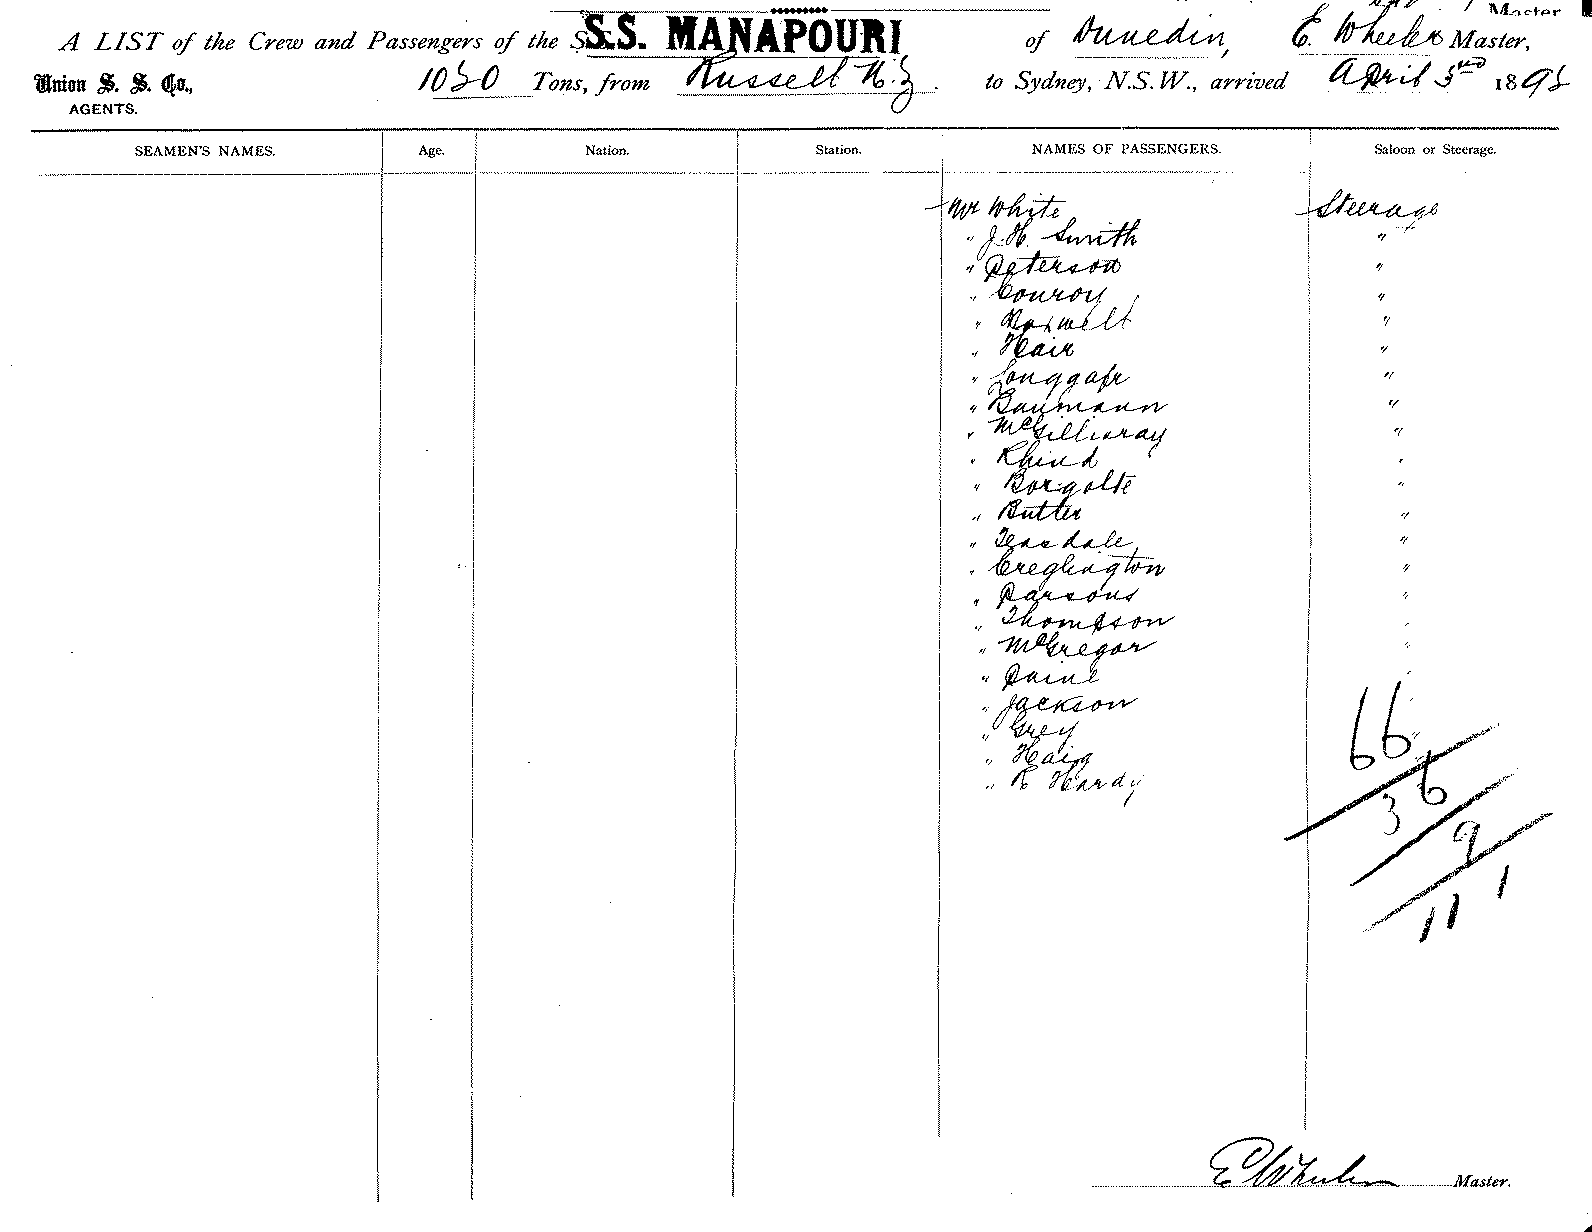 Master
A LIST of the Crew and Passengers of the S.S. MANAPOURI of Dunedin, E. Wheeler Master,
Union S. S. Co., 1020 Tons, from Russell N.Z. to Sydney, N.S.W., arrived April 3rd 1895
AGENTS.
SEAMEN'S NAMES. Age. Nation. Station. NAMES OF PASSENGERS. Saloon or Steerage.
Mr White Steerage
" J. H. Smith "
" Peterson "
" Conroy "
" Maxwell "
" Hair "
" "
" Baumann "
" McGillivray "
" Rhind "
" Borgolte "
" Butter "
" Teasdale "
" Creglington "
" Parsons "
" Thompson "
" McGregor "
" Paine "
" Jackson "
" Grey "
" Haig
" R Hardy
66
36
9
111
E Wheeler Master.